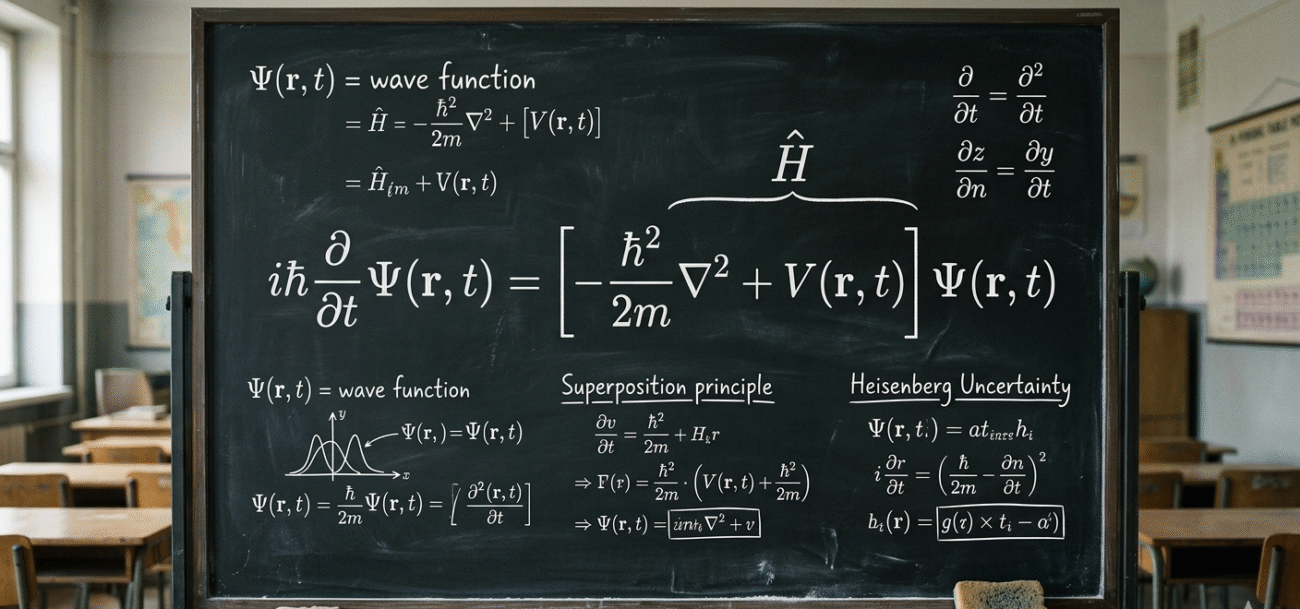 Ψ(r, t) = wave function
= Ĥ = -ħ²/2m ∇² + [V(r, t)]
= Ĥ_im + V(r, t)
∂/∂t = ∂²/∂t
∂z/∂n = ∂y/∂t
Ĥ
iħ ∂/∂t Ψ(r, t) = [-ħ²/2m ∇² + V(r, t)] Ψ(r, t)
Ψ(r, t) = wave function
y
x
Ψ(r,)=Ψ(r, t)
Ψ(r, t) = ħ/2m Ψ(r, t) = [∂²(r, t)/∂t]
Superposition principle
∂v/∂t = ħ²/2m + H r
⇒ F(r) = ħ²/2m · (V(r, t) + ħ²/2m)
⇒ Ψ(r, t) = ∇² + v
Heisenberg Uncertainty
Ψ(r, t.) = h_i
i ∂r/∂t = (ħ/2m - ∂n/∂t)²
b_i(r) = × t_i -